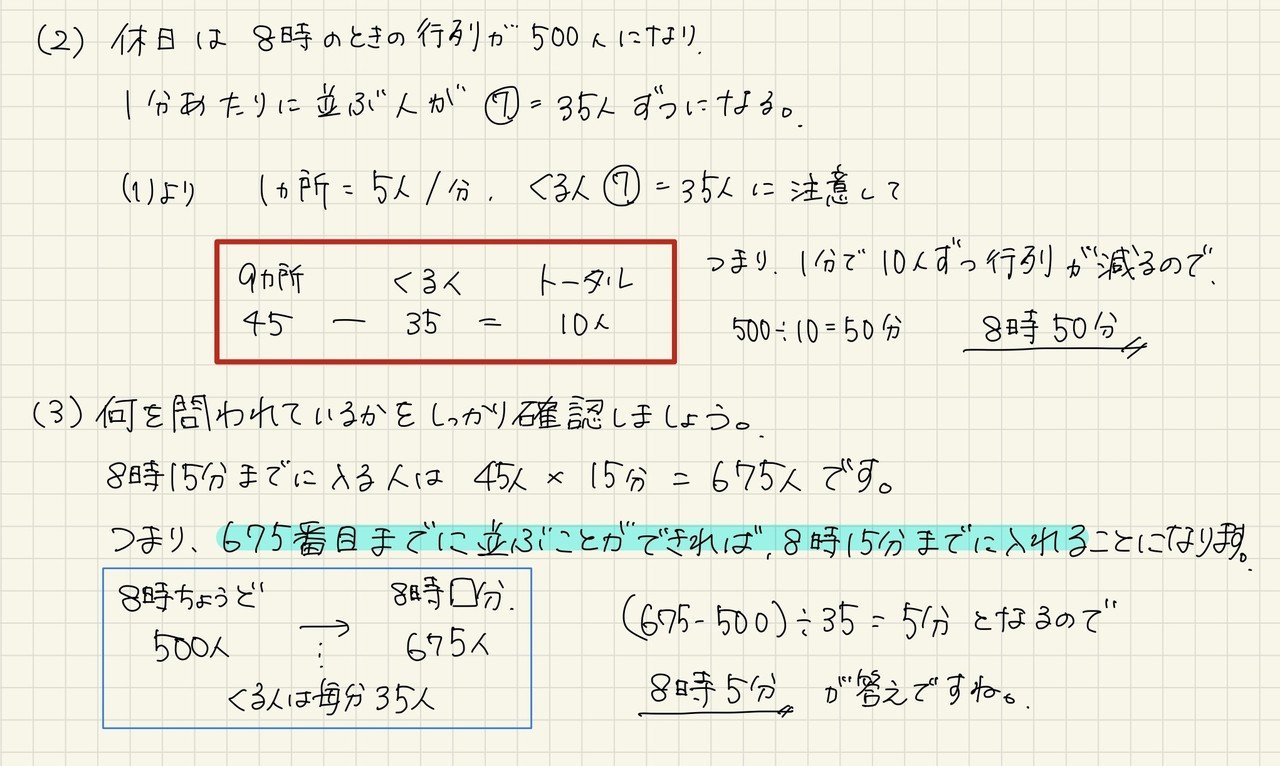 (2) 休日は 8時のときの行列が 500人になり、
1分あたりに並ぶ人が ⑦ = 35人ずつになる。
(1)より 1ヵ所 = 5人/分、くる人 ⑦ = 35人 に注意して
9ヵ所 くる人 トータル
45 − 35 = 10人
つまり、1分で10人ずつ行列が減るので、
500÷10=50分 8時50分
(3) 何を問われているかをしっかり確認しましょう。
8時15分までに入る人は 45人 × 15分 = 675人です。
つまり、675番目までに並ぶことができれば、8時15分までに入れることになります。
8時ちょうど 8時□分
500人 → 675人
くる人は毎分35人
(675-500)÷35=5分 となるので
8時5分 が答えですね。